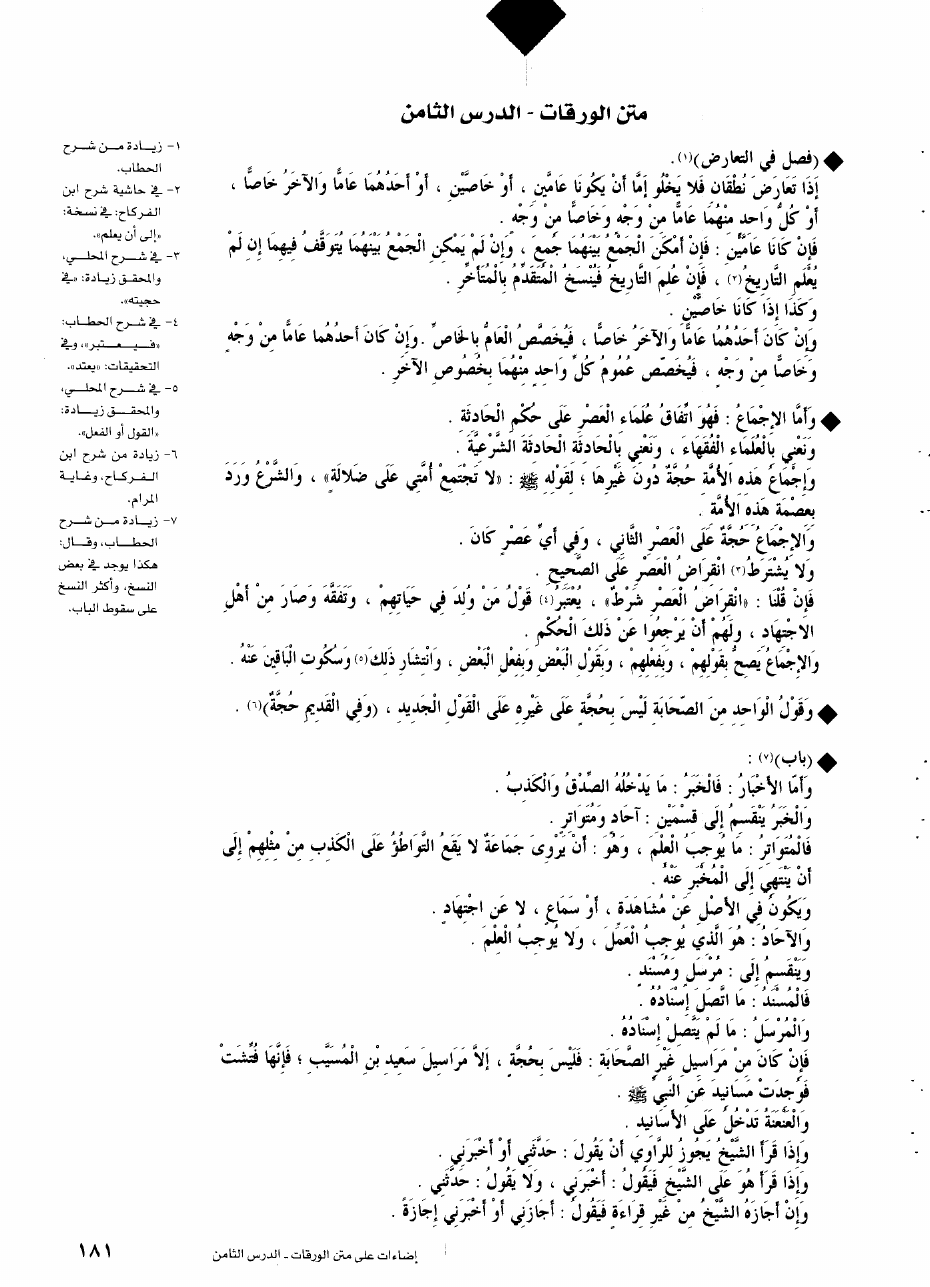 متن الورقات - الدرس الثامن
(فصل في التعارض)(١).
إِذَا تَعَارَضَ نُطْقَانِ فَلَا يَخْلُو إِمَّا أَنْ يَكُونَا عَامَّيْنِ ، أَوْ خَاصَّيْنِ ، أَوْ أَحَدُهُمَا عَامًّا وَالآخَرُ خَاصًّا ،
أَوْ كُلُّ وَاحِدٍ مِنْهُمَا عَامًّا مِنْ وَجْهٍ وَخَاصًّا مِنْ وَجْهٍ .
فَإِنْ كَانَا عَامَّيْنِ : فَإِنْ أَمْكَنَ الْجَمْعُ بَيْنَهُمَا جُمِعَ ، وَإِنْ لَمْ يُمْكِنِ الْجَمْعُ بَيْنَهُمَا يُتَوَقَّفُ فِيهِمَا إِن لَمْ
يُعْلَمِ التَّارِيخُ(٢) ، فَإِنْ عُلِمَ التَّارِيخُ فَيُنْسَخُ الْمُتَقَدِّمُ بِالْمُتَأَخِّرِ .
وَكَذَا إِذَا كَانَا خَاصَّيْنِ .
وَإِنْ كَانَ أَحَدُهُمَا عَامًّا وَالآخَرُ خَاصًّا ، فَيُخَصَّصُ الْعَامُّ بِالْخَاصِّ . وَإِنْ كَانَ أَحَدُهُما عَامًّا مِنْ وَجْهٍ
وَخَاصًّا مِنْ وَجْهٍ ، فَيُخَصَّصُ عُمُومُ كُلِّ وَاحِدٍ مِنْهُمَا بِخُصُوصِ الآخَرِ .
وَأَمَّا الإِجْمَاعُ : فَهُوَ اتِّفَاقُ عُلَمَاءِ الْعَصْرِ عَلَى حُكْمِ الْحَادِثَةِ .
وَنَعْنِي بِالْعُلَمَاءِ الْفُقَهَاءَ ، وَنَعْنِي بِالْحَادِثَةِ الْحَادِثَةَ الشَّرْعِيَّةَ .
وَإِجْمَاعُ هَذِهِ الأُمَّةِ حُجَّةٌ دُونَ غَيْرِهَا ؛ لِقَوْلِهِ ﷺ : «لَا تَجْتَمِعُ أُمَّتِي عَلَى ضَلَالَةٍ» ، وَالشَّرْعُ وَرَدَ
بِعِصْمَةِ هَذِهِ الأُمَّةِ .
وَالإِجْمَاعُ حُجَّةٌ عَلَى الْعَصْرِ الثَّانِي ، وَفِي أَيِّ عَصْرٍ كَانَ .
وَلَا يُشْتَرَطُ(٣) انْقِرَاضُ الْعَصْرِ عَلَى الصَّحِيحِ .
فَإِنْ قُلْنَا : «انْقِرَاضُ الْعَصْرِ شَرْطٌ» ، يُعْتَبَرُ(٤) قَوْلُ مَنْ وُلِدَ فِي حَيَاتِهِمْ ، وَتَفَقَّهَ وَصَارَ مِنْ أَهْلِ
الاجْتِهَادِ ، وَلَهُمْ أَنْ يَرْجِعُوا عَنْ ذَلِكَ الْحُكْمِ .
وَالإِجْمَاعُ يَصِحُّ بِقَوْلِهِمْ ، وَبِفِعْلِهِمْ ، وَبِقَوْلِ الْبَعْضِ وَبِفِعْلِ الْبَعْضِ ، وَانْتِشَارِ ذَلِكَ(٥) وَسُكُوتِ الْبَاقِينَ عَنْهُ .
وَقَوْلُ الْوَاحِدِ مِنَ الصَّحَابَةِ لَيْسَ بِحُجَّةٍ عَلَى غَيْرِهِ عَلَى الْقَوْلِ الْجَدِيدِ ، (وَفِي الْقَدِيمِ حُجَّةٌ)(٦) .
(باب)(٧) :
وَأَمَّا الأَخْبَارُ : فَالْخَبَرُ : مَا يَدْخُلُهُ الصِّدْقُ وَالْكَذِبُ .
وَالْخَبَرُ يَنْقَسِمُ إِلَى قِسْمَيْنِ : آحَادٍ وَمُتَوَاتِرٍ .
فَالْمُتَوَاتِرُ : مَا يُوجِبُ الْعِلْمَ ، وَهُوَ : أَنْ يَرْوِىَ جَمَاعَةٌ لَا يَقَعُ التَّوَاطُؤُ عَلَى الْكَذِبِ مِنْ مِثْلِهِمْ إِلَى
أَنْ يَنْتَهِيَ إِلَى الْمُخْبَرِ عَنْهُ .
وَيَكُونُ فِي الأَصْلِ عَنْ مُشَاهَدَةٍ ، أَوْ سَمَاعٍ ، لَا عَنِ اجْتِهَادٍ .
وَالآحَادُ : هُوَ الَّذِي يُوجِبُ الْعَمَلَ ، وَلَا يُوجِبُ الْعِلْمَ .
وَيَنْقَسِمُ إِلَى : مُرْسَلٍ وَمُسْنَدٍ .
فَالْمُسْنَدُ : مَا اتَّصَلَ إِسْنَادُهُ .
وَالْمُرْسَلُ : مَا لَمْ يَتَّصِلْ إِسْنَادُهُ .
فَإِنْ كَانَ مِنْ مَرَاسِيلِ غَيْرِ الصَّحَابَةِ : فَلَيْسَ بِحُجَّةٍ ، إِلَّا مَرَاسِيلَ سَعِيدِ بْنِ الْمُسَيَّبِ ؛ فَإِنَّهَا فُتِّشَتْ
فَوُجِدَتْ مَسَانِيدَ عَنِ النَّبِيِّ ﷺ .
وَالْعَنْعَنَةُ تَدْخُلُ عَلَى الأَسَانِيدِ .
وَإِذَا قَرَأَ الشَّيْخُ يَجُوزُ لِلرَّاوِي أَنْ يَقُولَ : حَدَّثَنِي أَوْ أَخْبَرَنِي .
وَإِذَا قَرَأَ هُوَ عَلَى الشَّيْخِ فَيَقُولُ : أَخْبَرَنِي ، وَلَا يَقُولُ : حَدَّثَنِي .
وَإِنْ أَجَازَهُ الشَّيْخُ مِنْ غَيْرِ قِرَاءَةٍ فَيَقُولُ : أَجَازَنِي أَوْ أَخْبَرَنِي إِجَازَةً .
١- زيادة من شرح
الحطاب.
٢- في حاشية شرح ابن
الفركاح: في نسخة:
«إلى أن يعلم».
٣- في شرح المحلي،
والمحقق زيادة: «في
حجيته».
٤- في شرح الحطاب:
«فيعتبر»، وفي
التحقيقات: «يعتد».
٥- في شرح المحلي،
والمحقق زيادة:
«القول أو الفعل».
٦- زيادة من شرح ابن
الفركاح، وغاية
المرام.
٧- زيادة من شرح
الحطاب، وقال:
هكذا يوجد في بعض
النسخ، وأكثر النسخ
على سقوط الباب.
إضاءات على متن الورقات - الدرس الثامن
١٨١